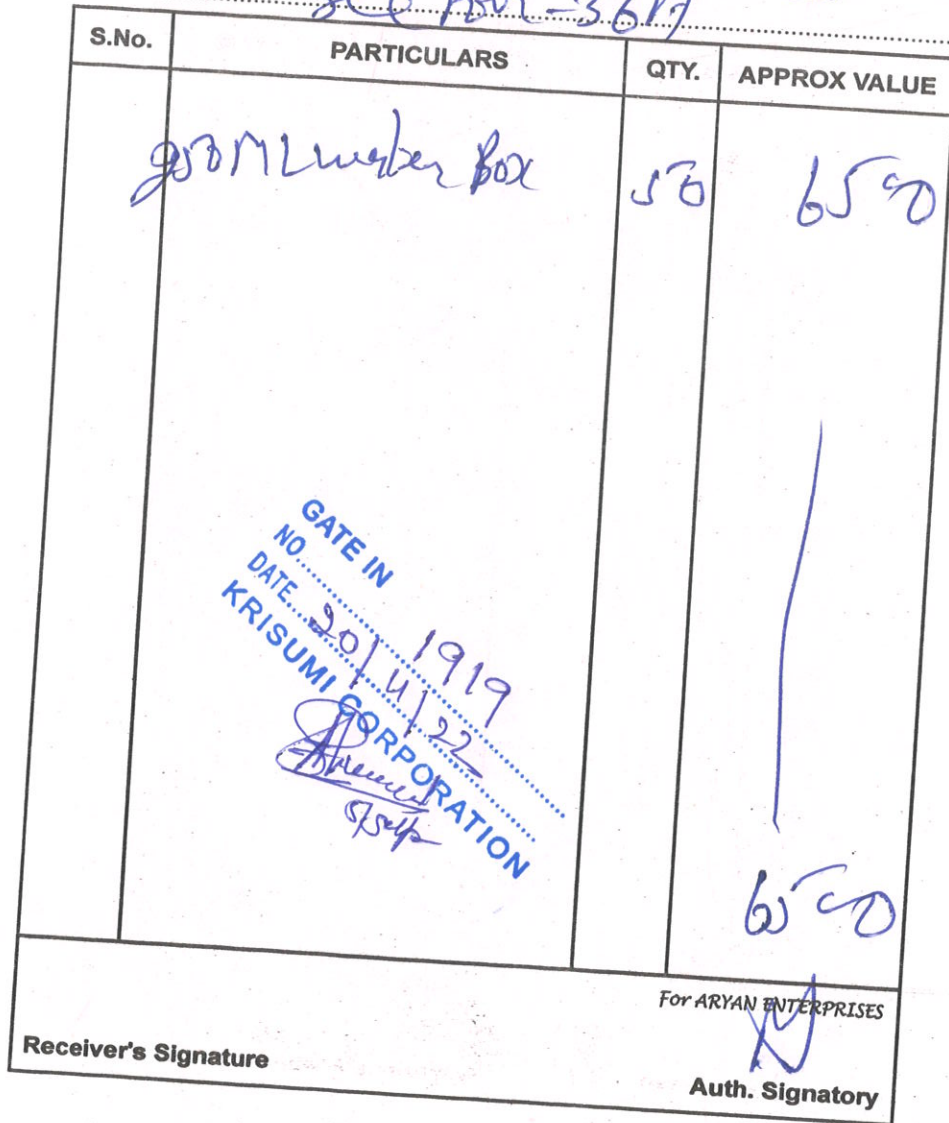 3617
S.No. PARTICULARS QTY. APPROX VALUE
Box 50 6500
GATE IN
NO. 1919
DATE 20/4/22
KRISUMI CORPORATION
6500
For ARYAN ENTERPRISES
Receiver's Signature
Auth. Signatory